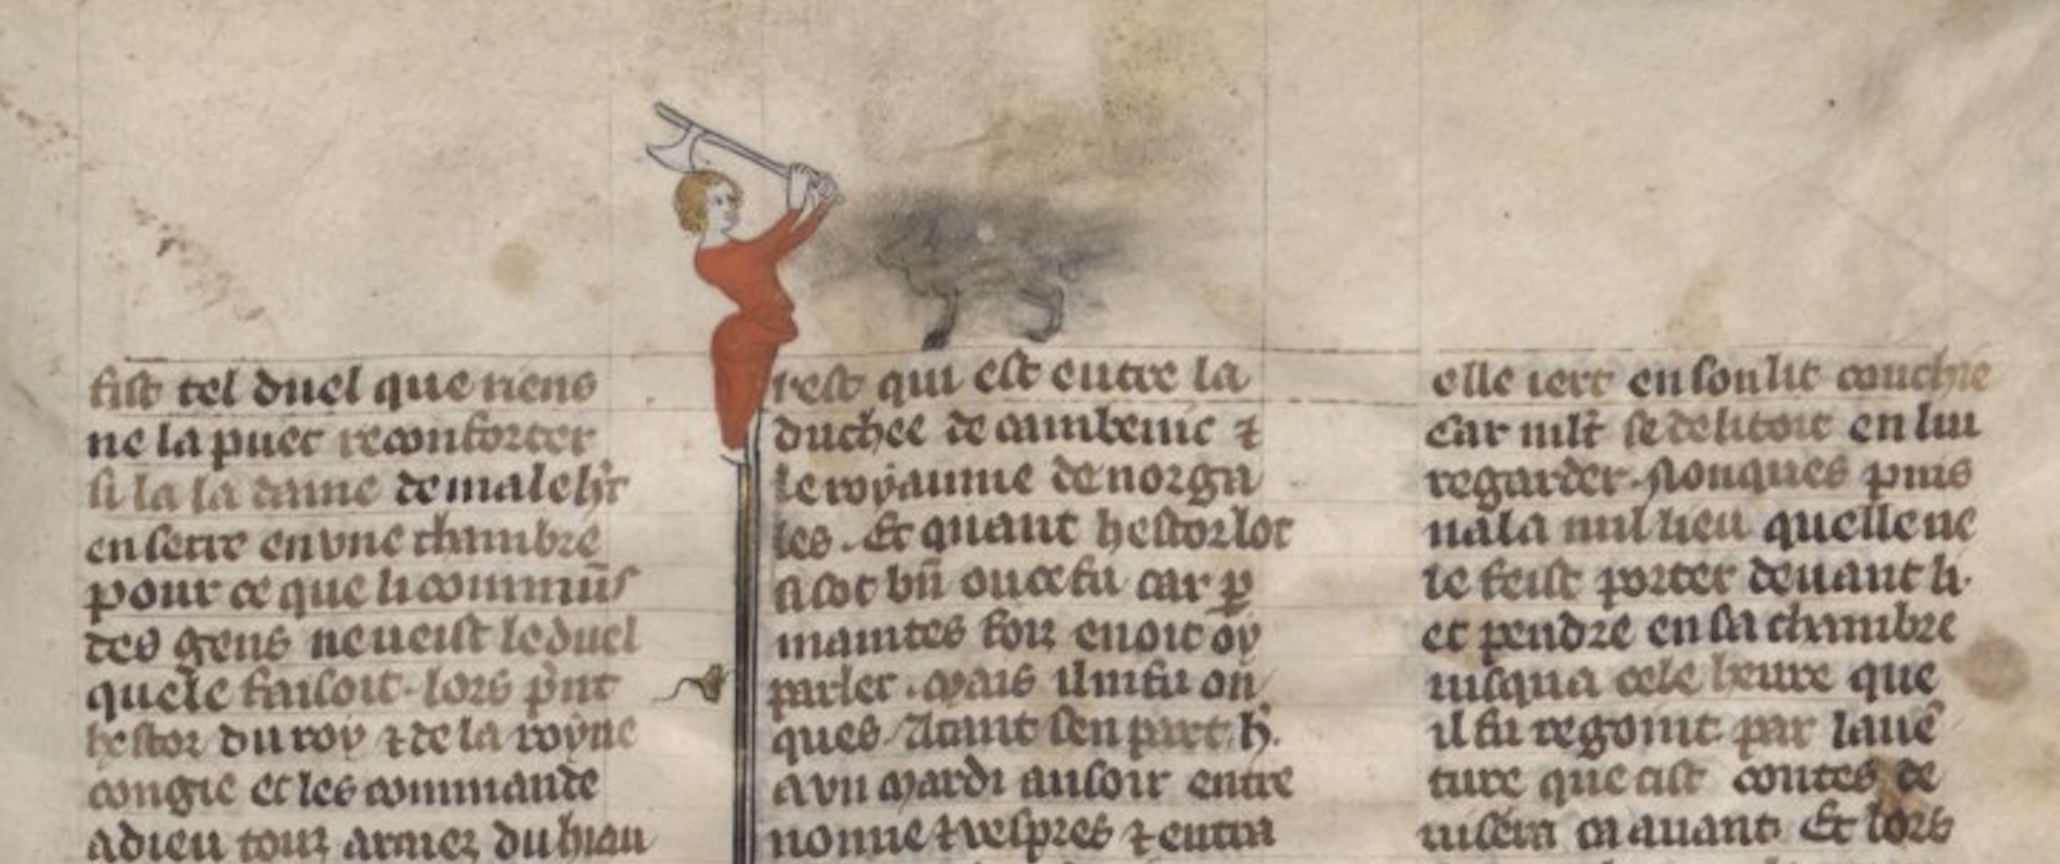 fist tel duel que riens
ne la puet reconforter
si la la dame de maleh't
en serre en vne chambre
pour ce que li commūs
des gens ne ueist le duel
quele faisoit. lors p̄nt
hestor du roy ⁊ de la royne
congie et les commande
a dieu touz armez du hiau
rest qui est entre la
duchee de cambenic ⁊
le royaume de norga
les. Et quant hestor lot
si sot bn̄ ou ce fu car ꝑ
maintes foiz en oit oy
parler. mais il ni fu on
ques. Atant sen part. h'.
a vn mardi au soir entre
nonne ⁊ vespres ⁊ entra
elle iert en son lit couchie
Car mlt̄ se delitoit en lui
regarder. Nonques puis
nala nul lieu quelle ne
le feist porter deuant li.
et pendre en sa chambre
iusqua cele heure que
il fu regoint par lauē
ture que cist contes de
uisera ca auant. Et lors